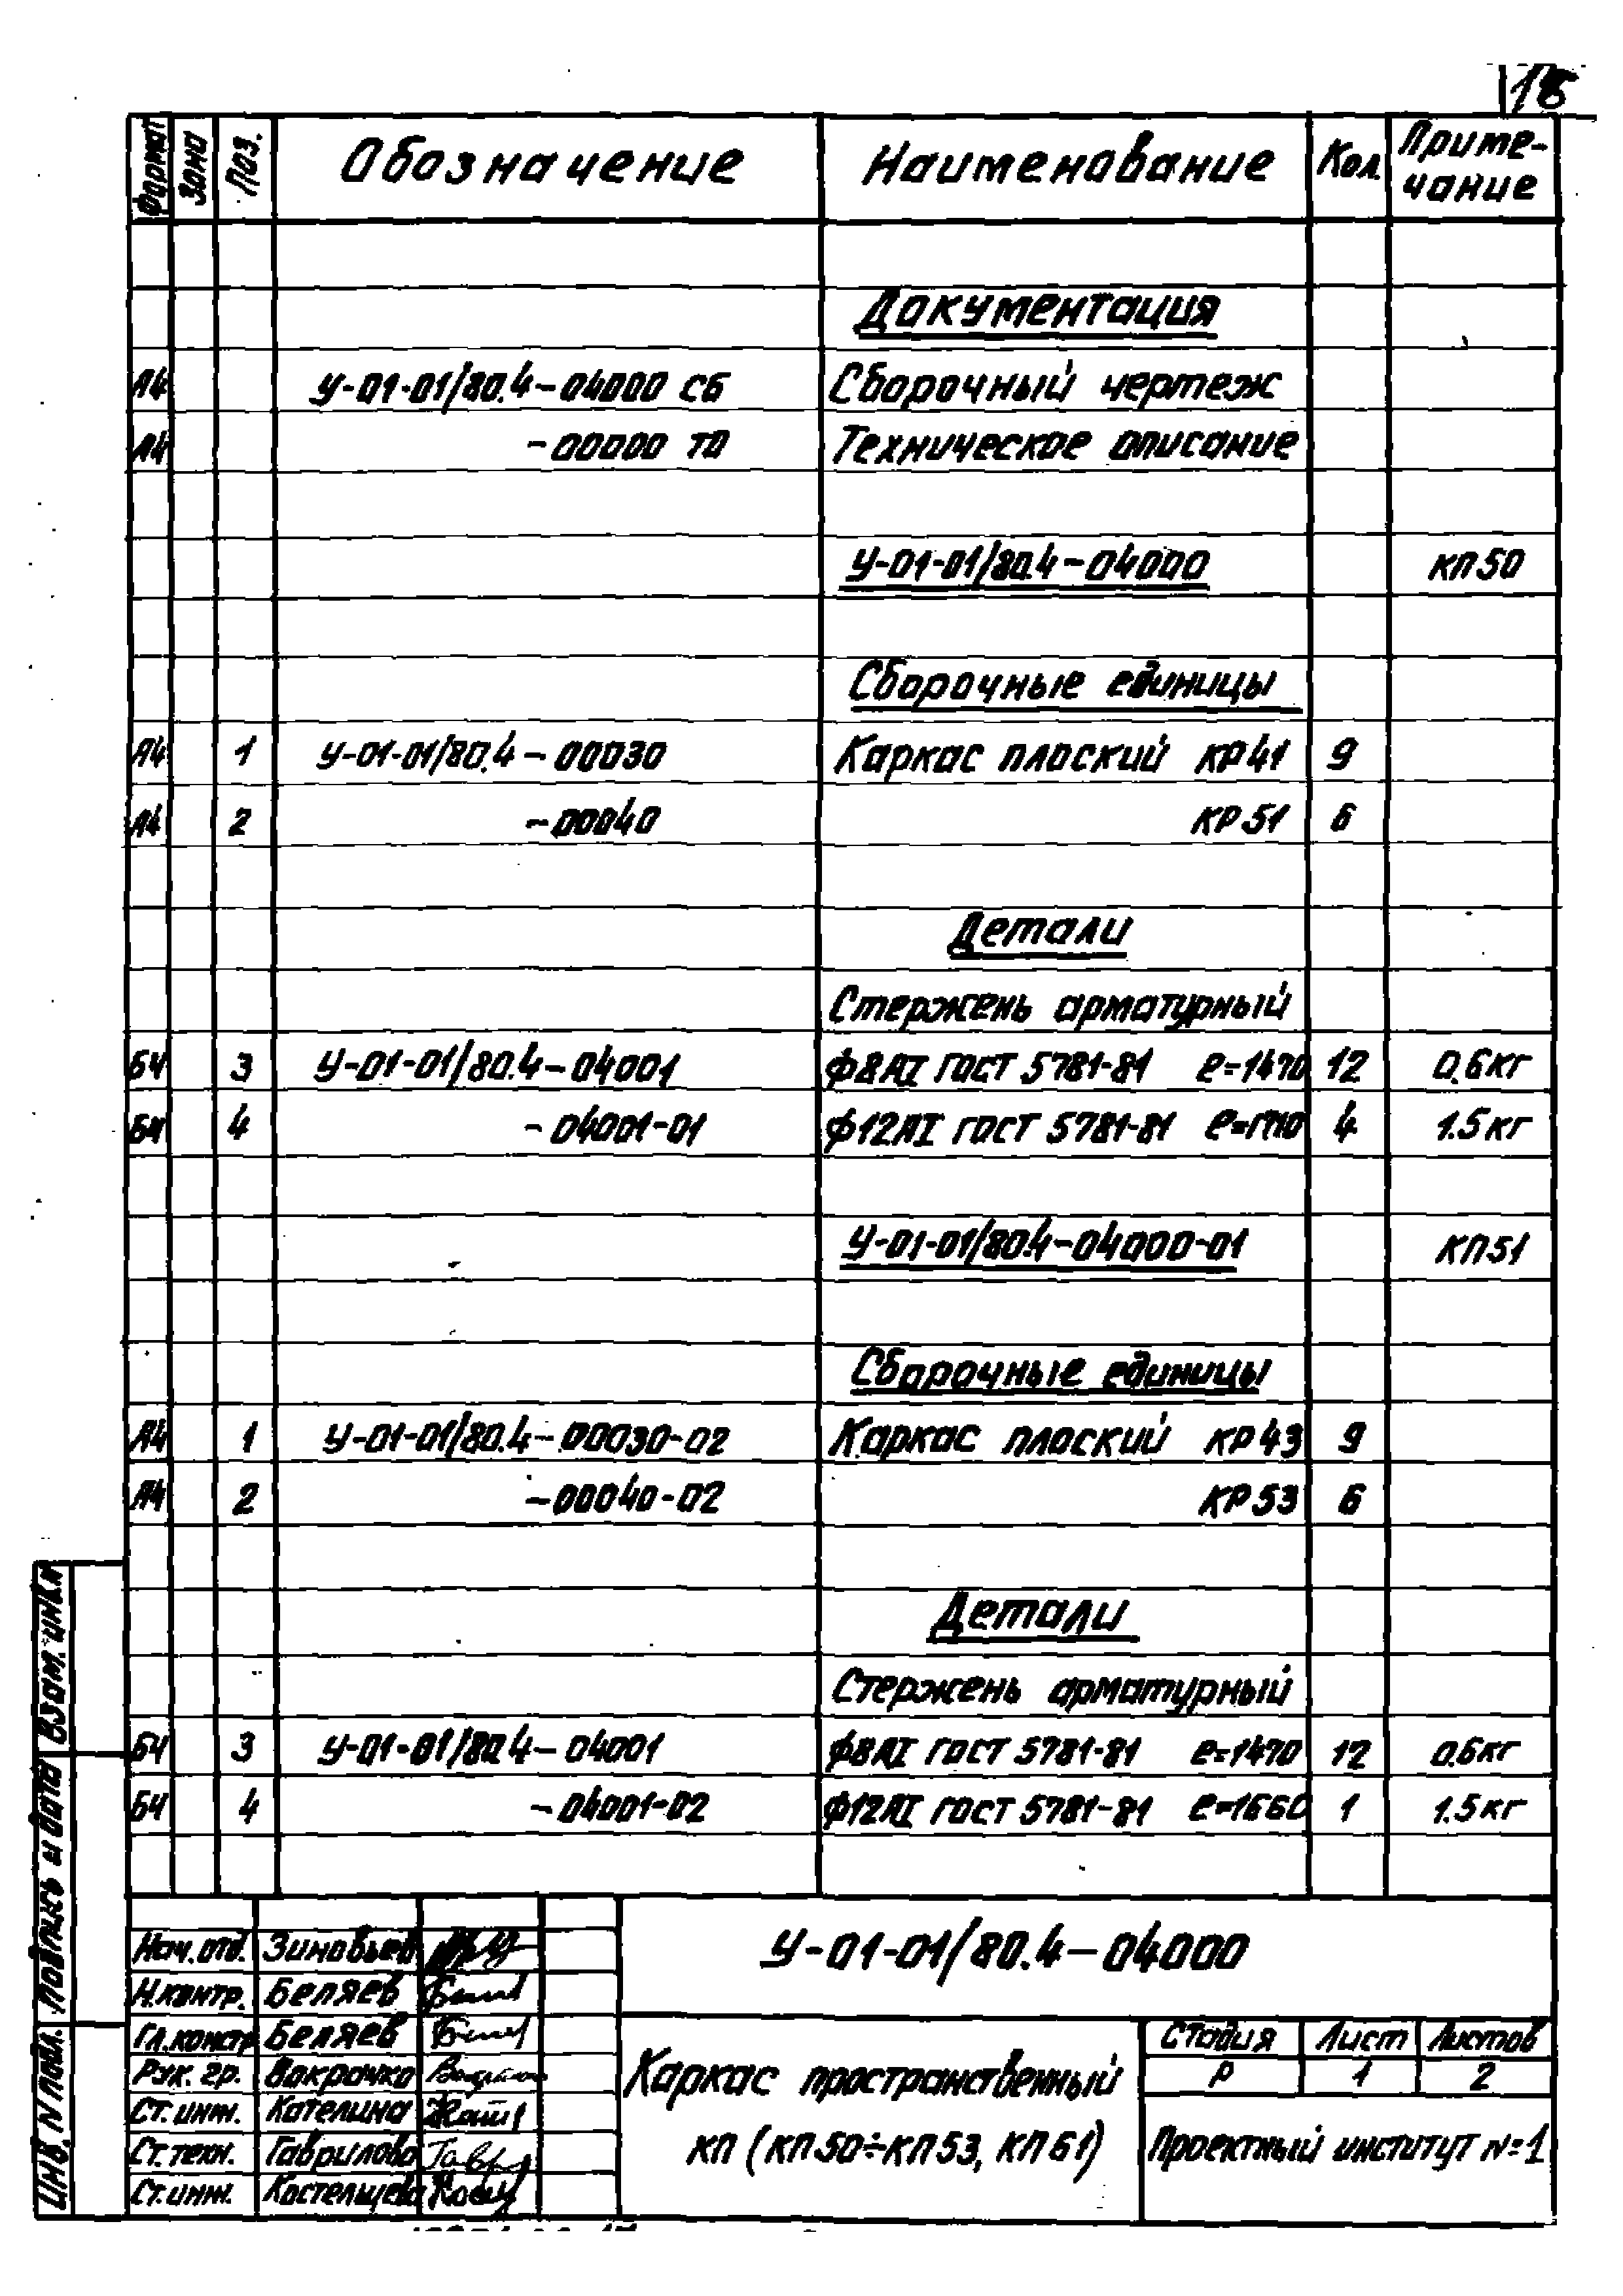 Формат Зона Поз. Обозначение Наименование Кол. Приме-
чание
Документация
А4 У-01-01/80.4-04000 СБ Сборочный чертеж
А4 -00000 ТО Техническое описание
У-01-01/80.4-04000 КП50
Сборочные единицы
А4 1 У-01-01/80.4-00030 Каркас плоский КР41 9
А4 2 -00040 КР51 6
Детали
Стержень арматурный
БЧ 3 У-01-01/80.4-04001 Ф8АI ГОСТ 5781-81 ℓ=1470 12 0.6кг
БЧ 4 -04001-01 Ф12АI ГОСТ 5781-81 4 1.5кг
У-01-01/80.4-04000-01 КП51
Сборочные единицы
А4 1 У-01-01/80.4-00030-02 Каркас плоский КР43 9
А4 2 -00040-02 КР53 6
Детали
Стержень арматурный
БЧ 3 У-01-01/80.4-04001 Ф8АI ГОСТ 5781-81 ℓ=1470 12 0.6кг
БЧ 4 -04001-02 Ф12АI ГОСТ 5781-81 ℓ=1660 1 1.5кг
Взам. инв.№
Подпись и дата
Инв. № подл.
Нач. отд. Зиновьев
Н.контр. Беляев
Гл.констр. Беляев
Рук. гр. Вакрачко
Ст. инж. Кателина
Ст. техн. Гаврилова
Ст. инж. Костелцева
У-01-01/80.4-04000
Каркас пространственный
КП (КП50÷КП53, КП61)
Стадия Лист Листов
Р 1 2
Проектный институт №1